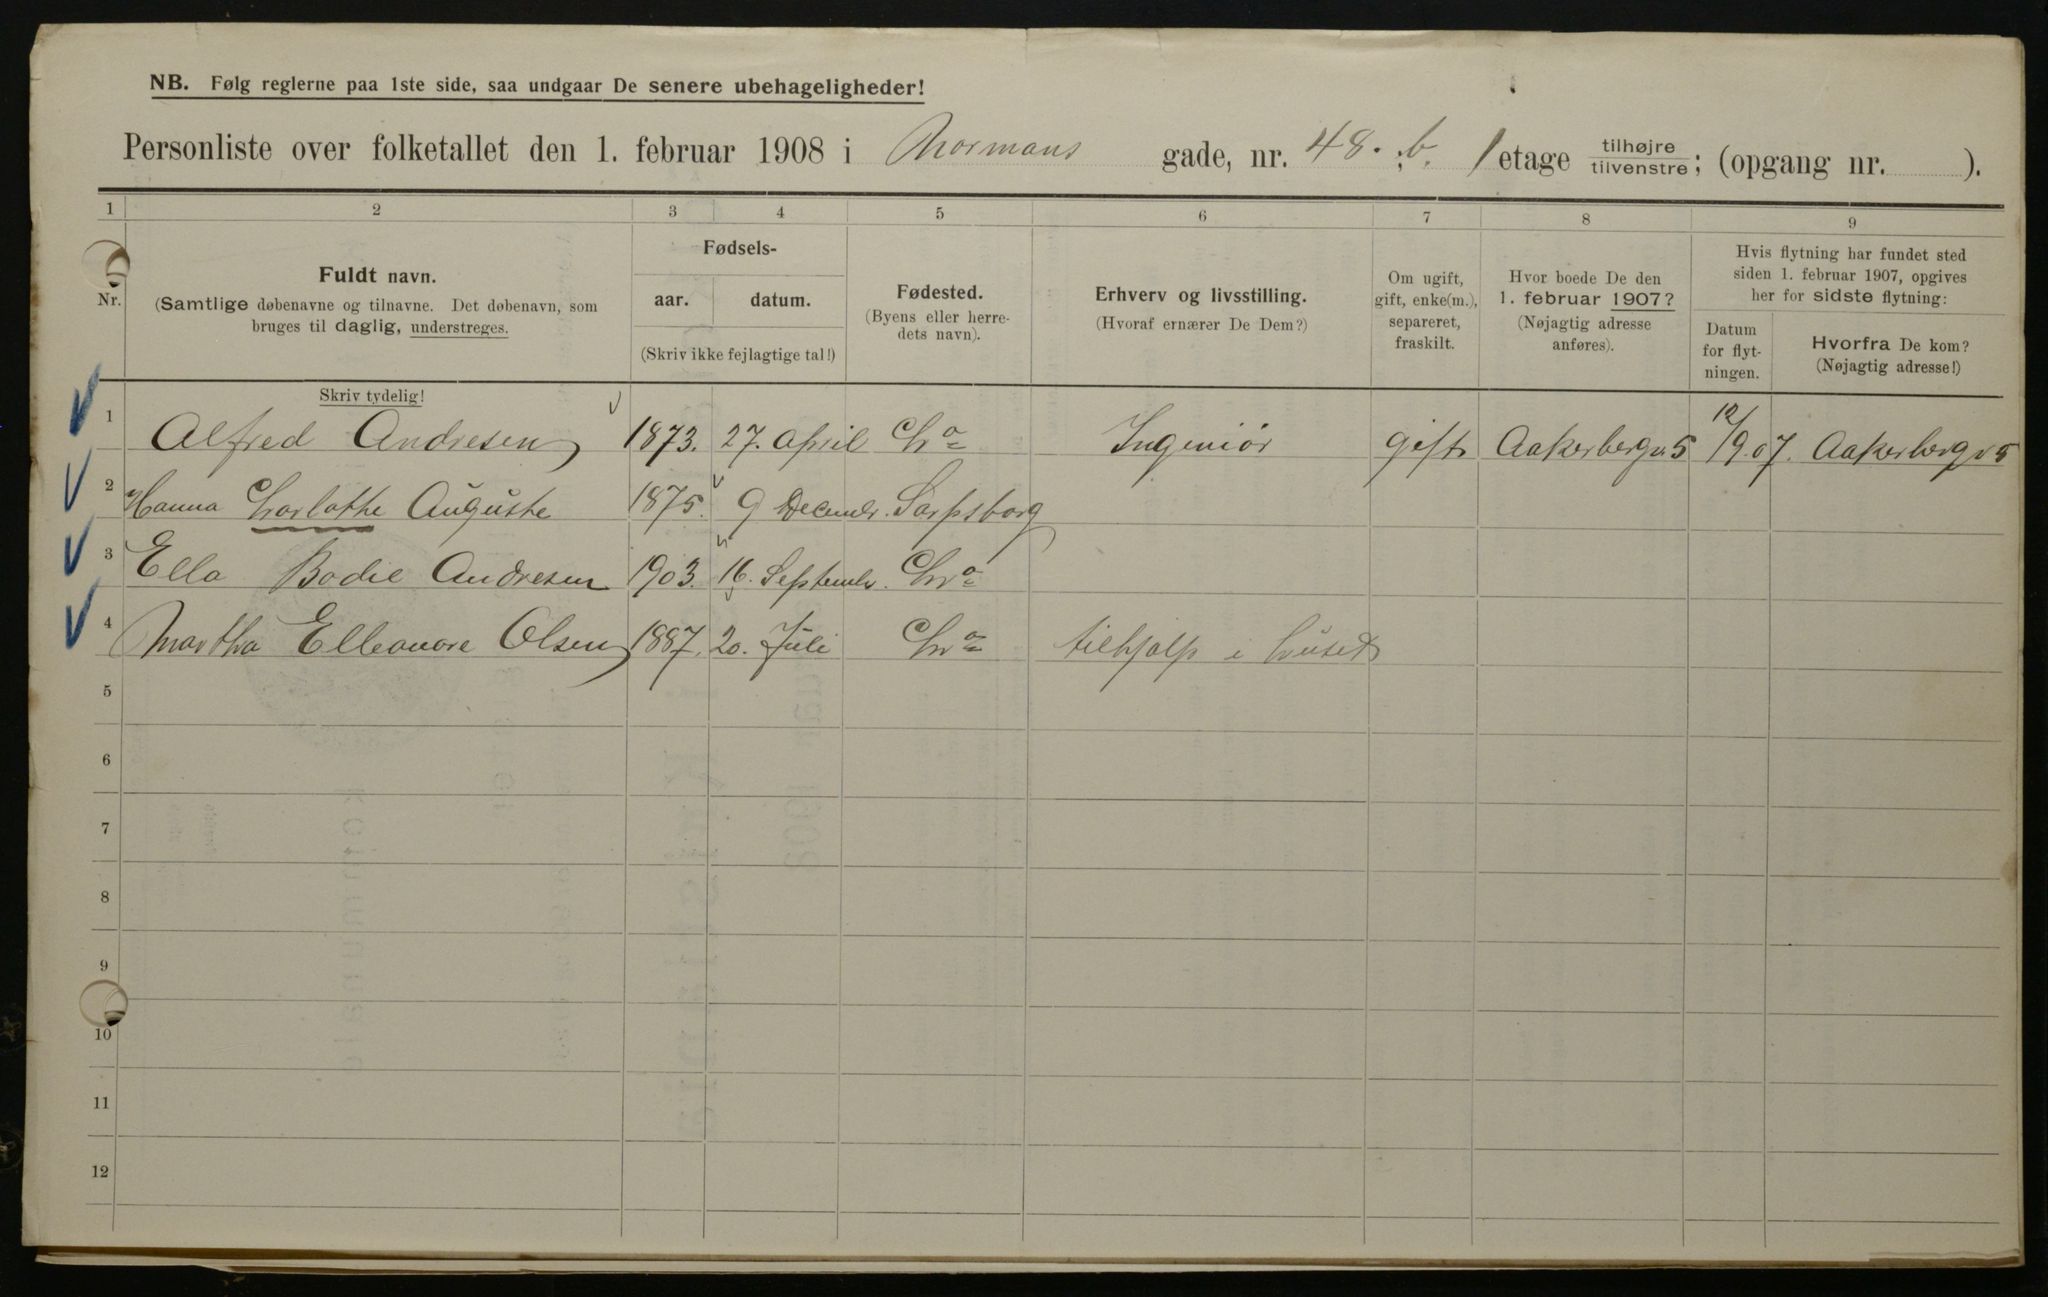 NB. Følg reglerne paa 1ste side, saa undgaar De senere ubehageligheder!
Personliste over folketallet den 1. februar 1908 i Normans gade, nr. 48. ; b. 1 etage tilhøjre/tilvenstre; (opgang nr. ).
1 2 3 4 5 6 7 8 9
Nr.
Fuldt navn.
(Samtlige døbenavne og tilnavne. Det døbenavn, som
bruges til daglig, understreges.
Skriv tydelig!
Fødsels-
aar. datum.
(Skriv ikke fejlagtige tal!)
Fødested.
(Byens eller herre-
dets navn).
Erhverv og livsstilling.
(Hvoraf ernærer De Dem?)
Om ugift,
gift, enke(m.),
separeret,
fraskilt.
Hvor boede De den
1. februar 1907?
(Nøjagtig adresse
anføres).
Hvis flytning har fundet sted
siden 1. februar 1907, opgives
her for sidste flytning:
Datum
for flyt-
ningen.
Hvorfra De kom?
(Nøjagtig adresse!)
1 Alfred Andresen 1873. 27. April Chra Ingeniør gift Aakerbergv 5 12/9.07. Aakerbergv 5
2 Hanna Charlothe Auguste 1875. 9 Decembr. Sarpsborg
3 Ella Bodil Andresen 1903. 16. Septembr. Chra
4 Martha Elleonore Olsen 1887. 20. Juli Chra tilhjælp i huset
5
6
7
8
9
10
11
12